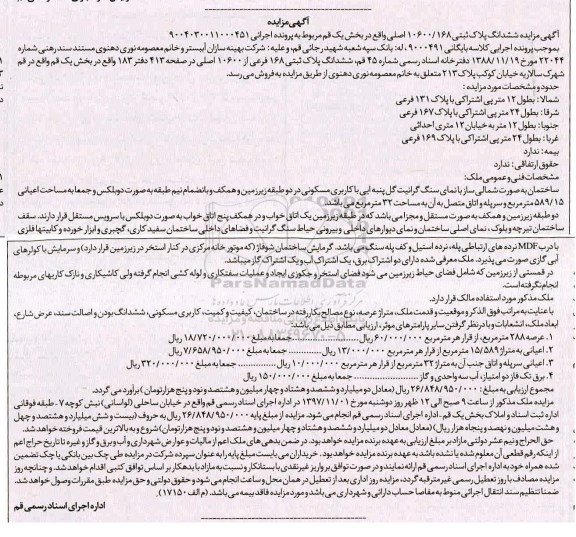 آگهی مزایده
آگهی مزایده ششدانگ پلاک ثبتی ۱۰۶۰۰/۱۶۸ اصلی واقع در بخش یک قم مربوط به پرونده اجرائی ۹۰۰۴۰۳۰۰۱۱۰۰۰۴۵۱
بموجب پرونده اجرایی کلاسه بایگانی ۹۰۰۰۴۹۱، له: بانک سپه شعبه شهید رجائی قم، و علیه: شرکت بهینه سازان آبیستر و خانم معصومه نوری دهنوی مستند سند رهنی شماره
۲۲۰۴۴ مورخ ۱۳۸۸/۱۱/۱۹ دفترخانه اسناد رسمی شماره ۴۵ قم، ششدانگ پلاک ثبتی ۱۶۸ فرعی از ۱۰۶۰۰ اصلی در صفحه ۴۱۳ دفتر ۱۸۳ واقع در بخش یک قم واقع در قم
شهرک سالاریه خیابان کوکب پلاک ۲۱۳ متعلق به خانم معصومه نوری دهنوی از طریق مزایده به فروش می رسد.
حدود و مشخصات مورد مزایده:
شمالا: بطول ۱۲ متر پی اشتراکی با پلاک ۱۳۱ فرعی
شرقا: بطول ۲۴ متر پی اشتراکی با پلاک ۱۶۷ فرعی
جنوبا: بطول ۱۲ متر به خیابان ۱۲ متری احداثی
غربا: بطول ۲۴ متر پی اشتراکی با پلاک ۱۶۹ فرعی
بیمه: ندارد
حقوق ارتفاقی: ندارد
مشخصات فنی و عمومی ملک:
ساختمان به صورت شمالی ساز با نمای سنگ گرانیت گل پنبه ایی با کاربری مسکونی در دو طبقه زیرزمین و همکف و بانضمام نیم طبقه به صورت دوبلکس و جمعا به مساحت اعیانی
۵۸۹/۱۵ مترمربع و سرپله و اتاق متصل به آن به مساحت ۳۲ مترمربع می باشد
دو طبقه زیرزمین و همکف به صورت مستقل و مجزا می باشد که در طبقه زیرزمین یک اتاق خواب و در همکف پنج اتاق خواب به صورت دوبلکس با سرویس مستقل قرار دارند. سقف
ساختمان تیرچه و بلوک، نمای اصلی ساختمان و نمای دیوارهای داخلی و بیرونی حیاط سنگ گرانیت و فضاهای داخلی ساختمان سفید کاری، گچبری و ابزار خورده و کابینتها فلزی
با درب MDF نرده های ارتباطی پله، نرده استیل و کف پله سنگ می باشد. گرمایش ساختمان شوفاژ (که موتورخانه مرکزی در کنار استخر در زیرزمین قرار دارد) و سرمایش با کولرهای
آبی گازی صورت می پذیرد. ملک معرفی شده دارای دو اشتراک برق، یک اشتراک آب و یک اشتراک گاز میباشد.
در قسمتی از زیرزمین که شامل فضای حیاط زیرزمین می شود فضای استخر و جکوزی ایجاد و عملیات سفتکاری و لوله کشی انجام گرفته ولی کاشیکاری و نازک کاریهای مربوطه
انجام نگرفته است.
ملک مذکور مورد استفاده مالک قرار دارد.
با عنایت به مراتب فوق الذکر و موقعیت و قدمت ملک، متراژ عرصه، نوع مصالح بکار رفته در ساختمان، کیفیت و کمیت، کاربری مسکونی، ششدانگ بودن و اصالت سند، عرض شارع،
ابعاد ملک، انشعابات با در نظر گرفتن سایر پارامترهای موثر، ارزیابی مطابق ذیل می باشد:
۱. عرصه ۲۸۸ مترمربع، از قرار هر مترمربع ۶۰/۰۰۰/۰۰۰ ریال ............ جمعا به مبلغ ۱۸/۷۲۰/۰۰۰/۰۰۰ ریال
۲. اعیانی به متراژ ۵۸۹/۱۵ مترمربع از قرار هر مترمربع ۱۳/۰۰۰/۰۰۰ ریال ............ جمعا به مبلغ ۷/۶۵۸/۹۵۰/۰۰۰ ریال
۳. اعیانی سرپله و اتاق جنب آن به متراژ ۳۲ مترمربع از قرار هر مترمربع ۱۰/۰۰۰/۰۰۰ ریال ............ جمعا به مبلغ ۳۲۰/۰۰۰/۰۰۰ ریال
۴. برق تک فاز دو امتیاز، آب سه واحدی و گاز ............ جمعا به مبلغ ۱۵۰/۰۰۰/۰۰۰ ریال
مجموع ارزیابی به مبلغ: ۲۶/۸۴۸/۹۵۰/۰۰۰ ریال (معادل دو میلیارد و ششصد و هشتاد و چهار میلیون و هشتصد و نود و پنج هزار تومان) برآورد می گردد.
مزایده ملک مذکور از ساعت ۹ صبح الی ۱۲ ظهر روز دوشنبه مورخ ۱۳۹۷/۱۱/۰۱ در اداره اجرای اسناد رسمی قم واقع در خیابان ساحلی (لواسانی) نبش کوچه ۷- طبقه فوقانی
اداره ثبت اسناد و املاک بخش یک قم. اداره اجرای اسناد رسمی قم انجام می شود. مزایده از مبلغ پایه ۲۶/۸۴۸/۹۵۰/۰۰۰ ریال به حروف (بیست و شش میلیارد و هشتصد و چهل
و هشت میلیون و نهصد و پنجاه هزار ریال) (معادل معادل دو میلیارد و ششصد و هشتاد و چهار میلیون و هشتصد و نود و پنج هزار تومان) شروع و به بالاترین قیمت فروخته خواهد شد.
حق الحراج و نیم عشر دولتی مازاد بر مبلغ ارزیابی به عهده برنده مزایده خواهد بود. در ضمن بدهی های ملک اعم از مالیات و عوارض شهرداری و آب و برق و گاز و غیره تا تاریخ حراج اعم
از اینکه رقم قطعی آن معلوم شده یا نشده باشد به عهده برنده مزایده خواهد بود. خریداران می بایست مبلغ پایه را به عنوان سپرده شرکت در مزایده طی چک بین بانکی یا چک تضمین
شده همراه خود به اداره اجرای اسناد رسمی قم ارائه نمایند و در صورت توافق بر واریز غیرنقدی با بستانکار و نسبت به مازاد با بدهکار بر اساس توافق کتبی اقدام خواهد شد. و چنانچه روز
مزایده مصادف با روز تعطیل رسمی غیر مترقبه گردد، مزایده روز اداری بعد از تعطیل در همان محل و ساعت انجام می شود و حقوق دولتی و حق مزایده طبق مقررات وصول خواهد شد.
ضمنا تنظیم سند انتقال اجرائی منوط به مفاصا حساب دارائی و شهرداری می باشد و مورد مزایده فاقد بیمه می باشد. (م الف ۱۷۱۵۰)
اداره اجرای اسناد رسمی قم
ParsNamadData